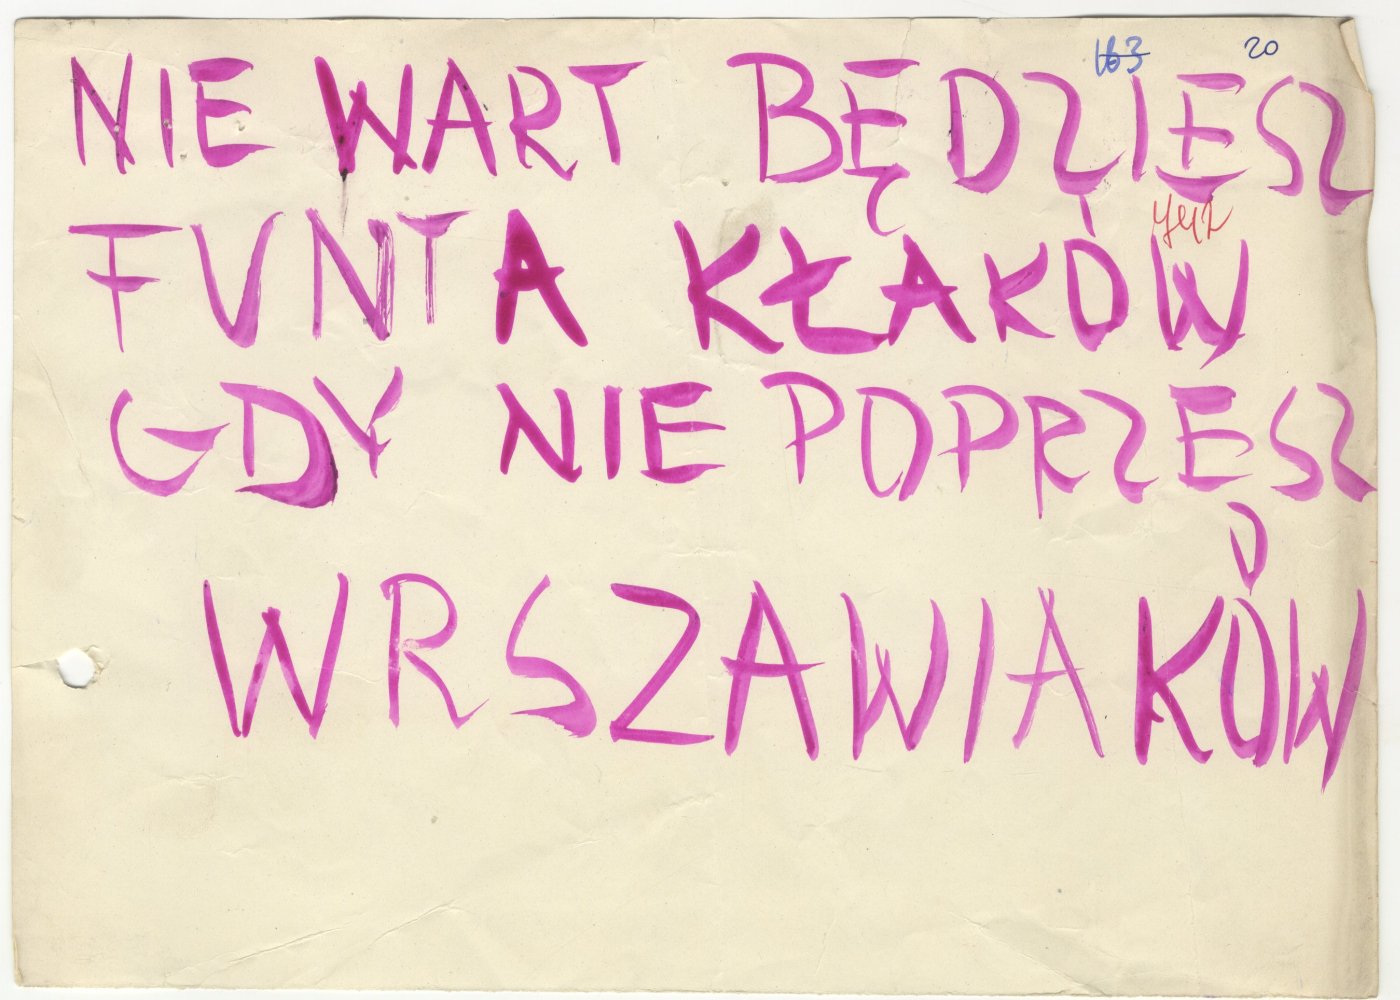 163 20
NIE WART BĘDZIESZ
FUNTA KŁAKÓW
GDY NIE POPRZESZ
WRSZAWIAKÓW